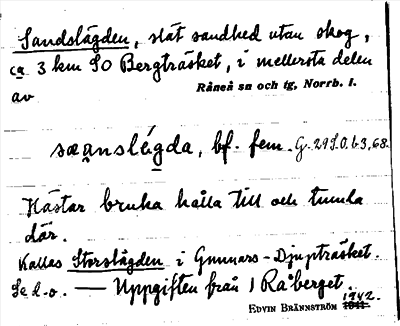 Sandslägden, slät sandhed utan skog,
ca 3 km SO Bergträsket, i mellersta delen
av
Råneå sn och tg, Norrb. l.
sæanslégda, bf. fem. G. 29 S.O. b. 3, 68.
Hästar bruka hålla till och tumla
där.
Kallas Storslägden i Gunnars-Djupträsket.
Se d. o. — Uppgiften från 1 Råberget.
EDVIN BRÄNNSTRÖM 1942.